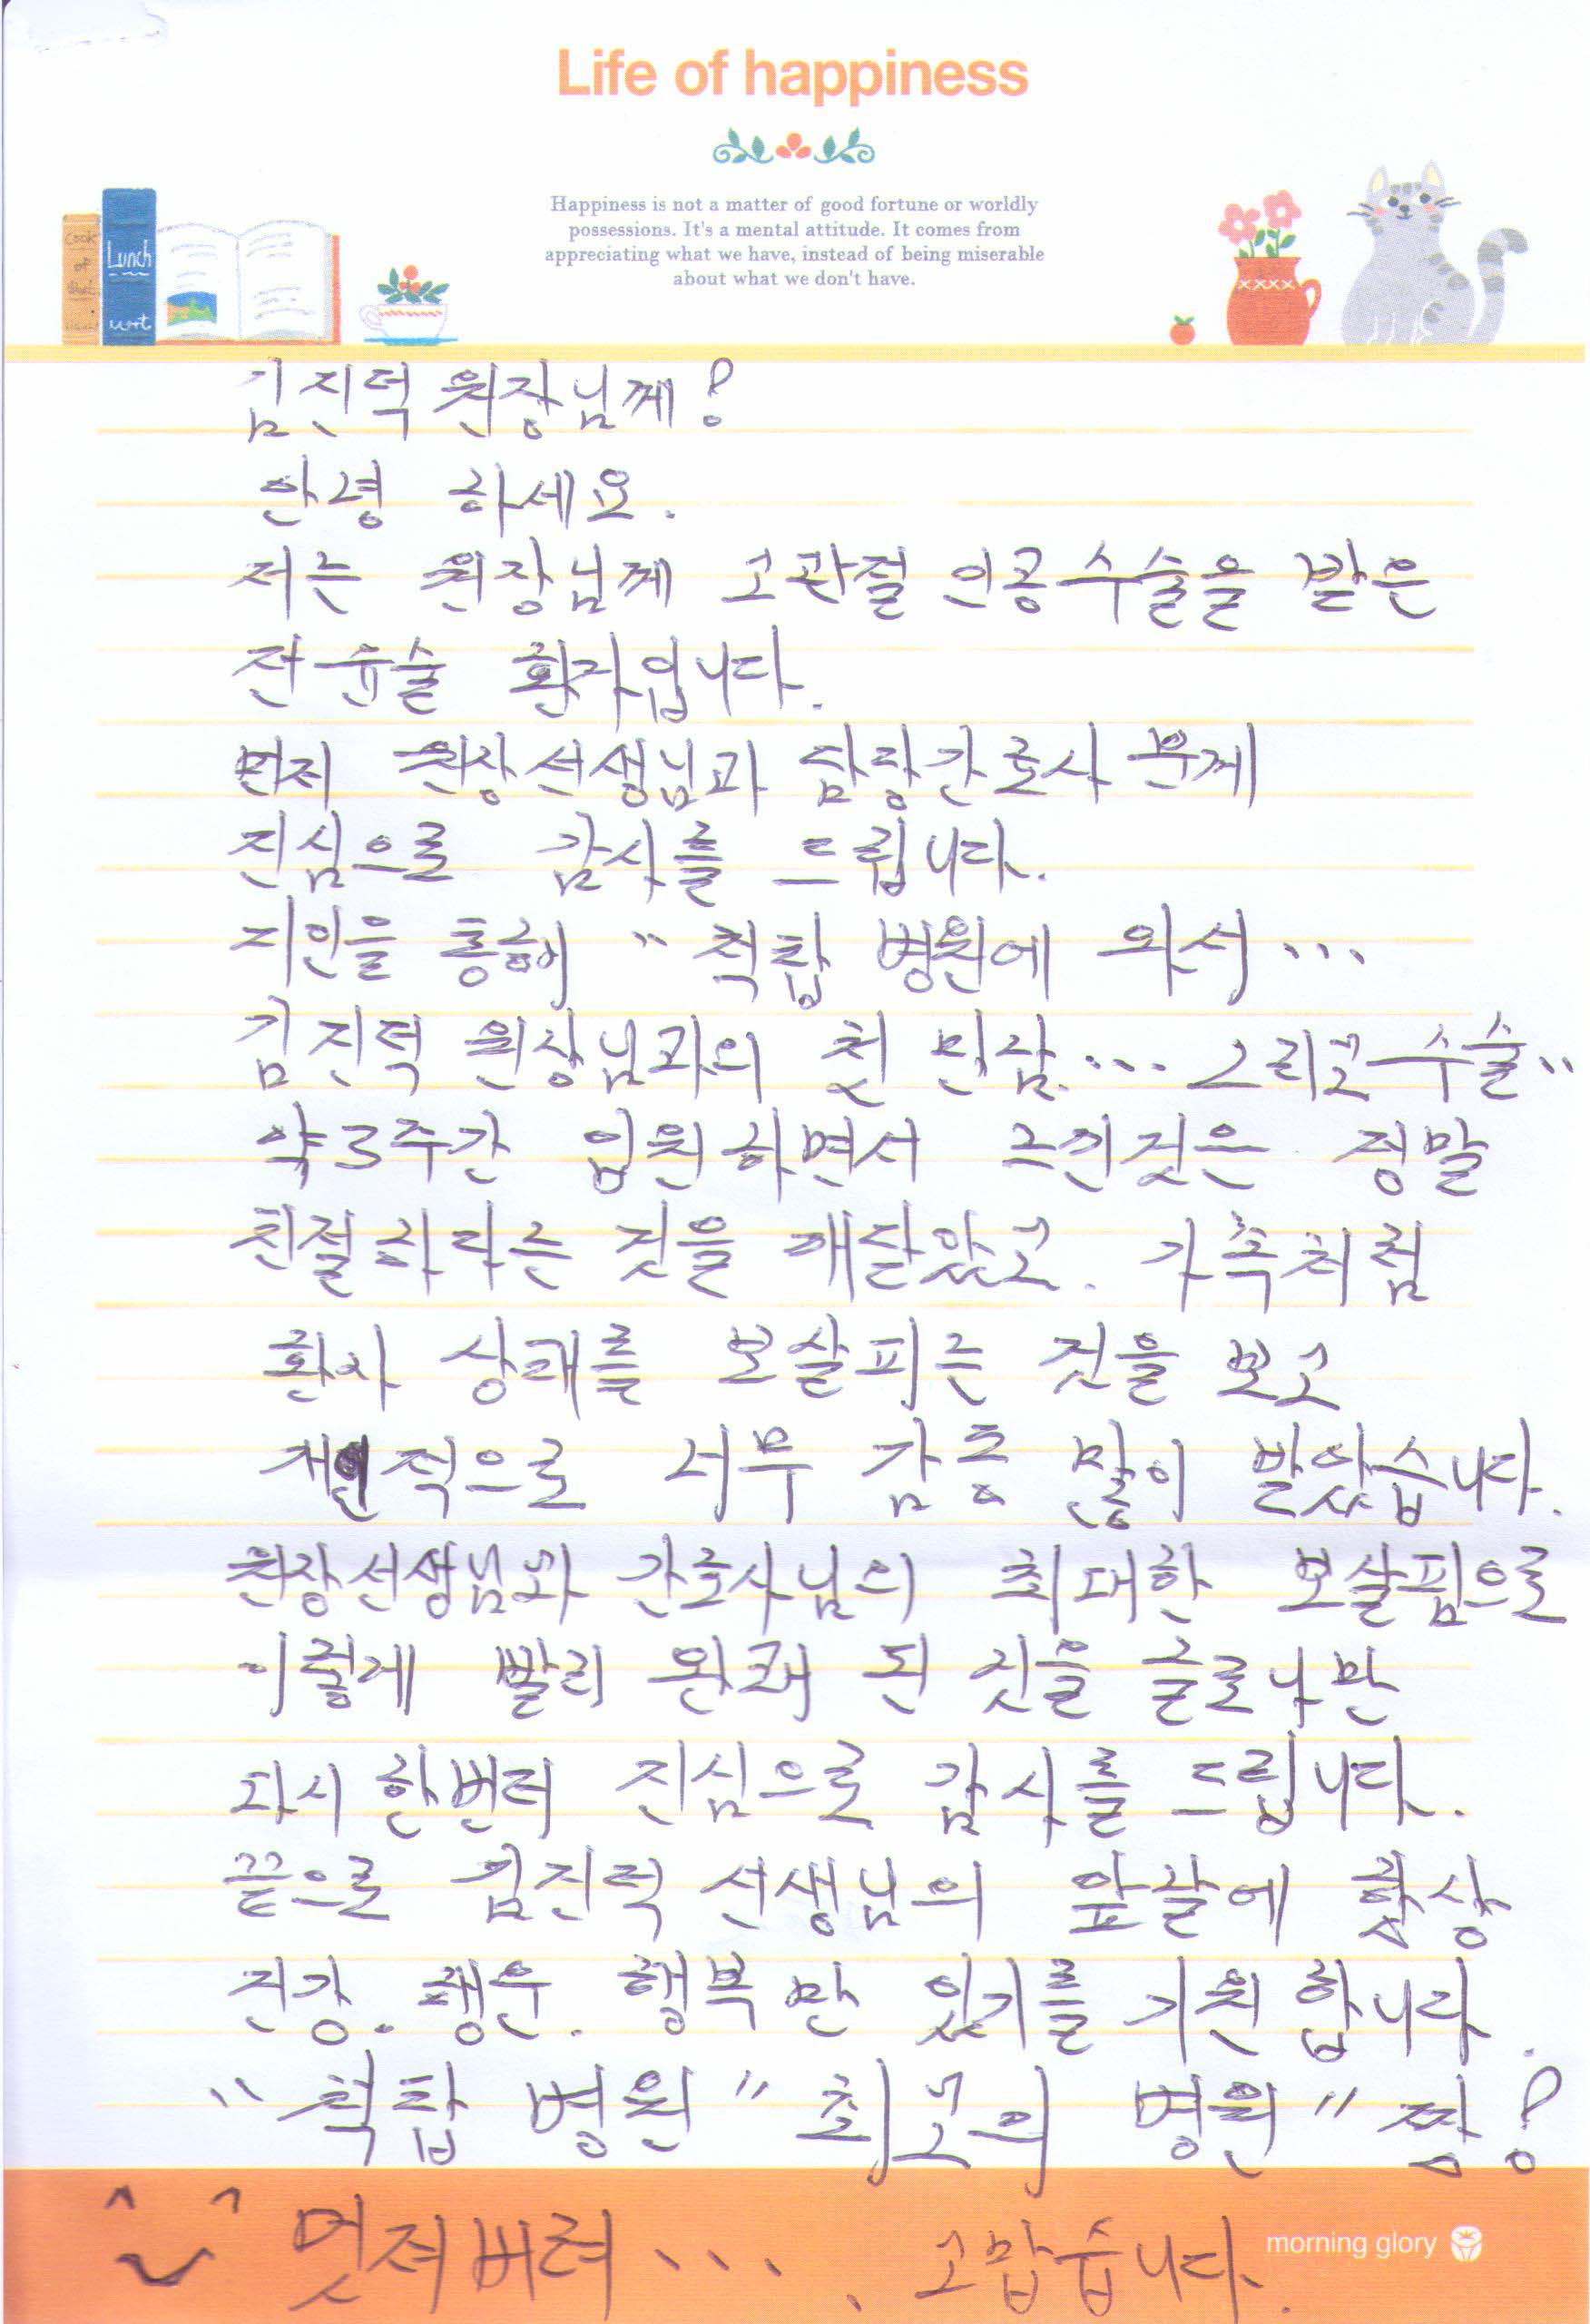 Life of happiness
Happiness is not a matter of good fortune or worldly
possessions. It's a mental attitude. It comes from
appreciating what we have, instead of being miserable
about what we don't have.
Cook
of
Lunch
김진덕 원장님께!
안녕 하세요.
저는 원장님께 고관절 인공수술을 받은
전윤술 환자입니다.
먼저 원장선생님과 담당간호사 분께
진심으로 감사를 드립니다.
지인을 통해 " 척탑 병원에 와서 ...
김진덕 원장님과의 첫 만남... 그리고 수술..
약 3주간 입원하면서 느낀것은 정말
친절하다는 것을 깨달았고. 가족처럼
환자 상태를 보살피는 것을 보고
개인적으로 너무 감동 많이 받았습니다.
원장선생님과 간호사님의 최대한 보살핌으로
이렇게 빨리 완쾌 된 것을 글로나만
다시 한번더 진심으로 감사를 드립니다.
끝으로 김진덕 선생님의 앞날에 항상
건강. 행운. 행복만 있기를 기원합니다.
" 척탑 병원 " 최고의 병원 " 짱!
멋져버려 ... . 고맙습니다.
morning glory